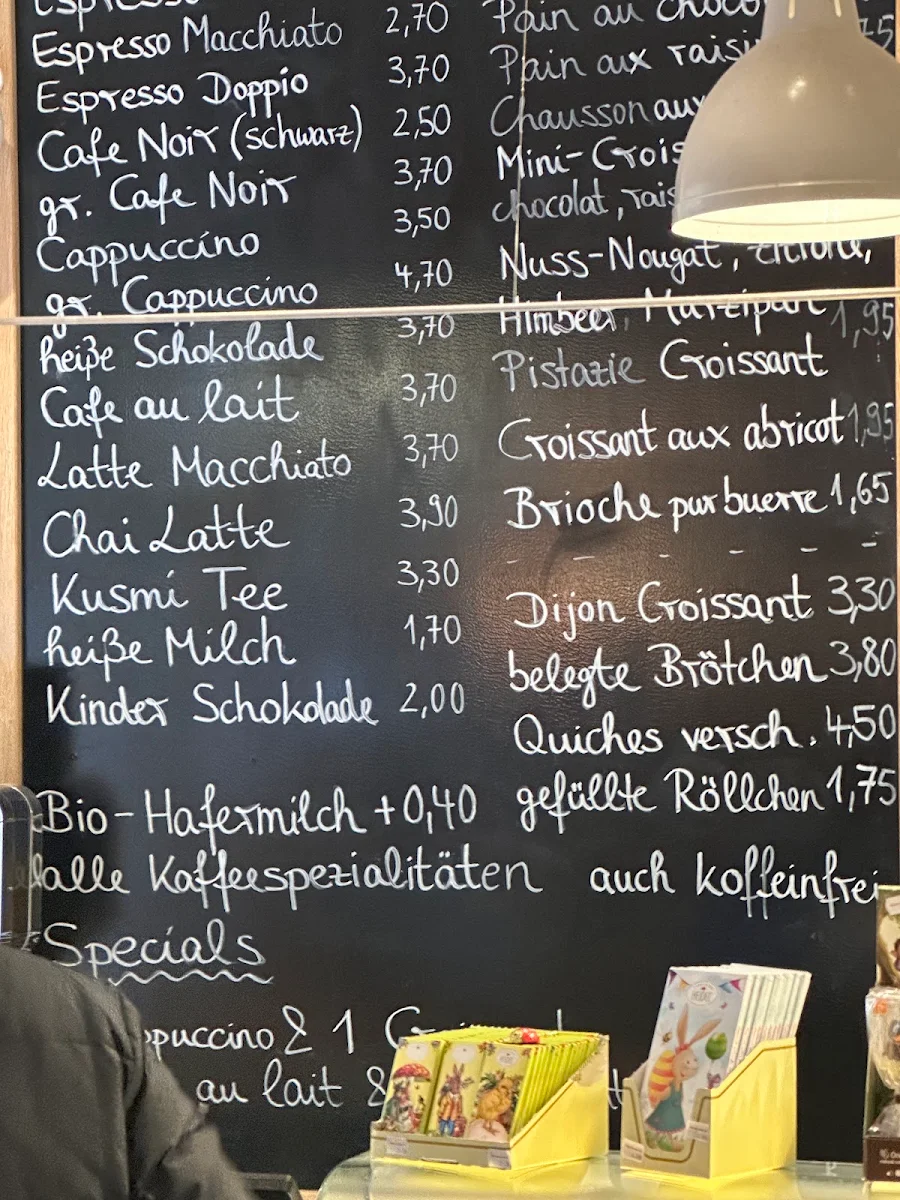 Espresso
Espresso Macchiato 2,70
Espresso Doppio 3,70
Cafe Noir (schwarz) 2,50
gr. Cafe Noir 3,70
Cappuccino 3,50
gr. Cappuccino 4,70
heiße Schokolade 3,70
Cafe au lait 3,70
Latte Macchiato 3,70
Chai Latte 3,90
Kusmi Tee 3,30
heiße Milch 1,70
Kinder Schokolade 2,00
Bio-Hafermilch +0,40
Pain au
Pain aux
Chausson aux
Mini-
chocolat,
Nuss-Nougat,
Himbeer, Marzipan 1,95
Pistazie Croissant
Croissant aux abricot 1,95
Brioche pur buerre 1,65
Dijon Croissant 3,30
belegte Brötchen 3,80
Quiches versch. 4,50
gefüllte Röllchen 1,75
alle Kaffeespezialitäten auch koffeinfrei
Specials
& 1
au lait &